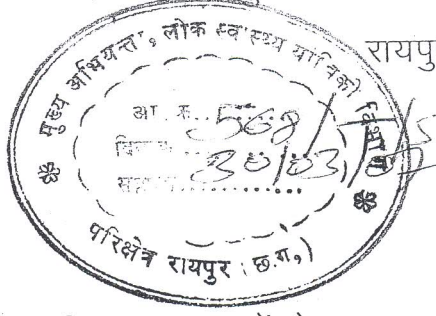 रायपु
मुख्य अभियन्ता, लोक स्वास्थ्य यांत्रिकी विभाग
आ. क्र. 568
30/03/
परिक्षेत्र रायपुर (छ.ग.)